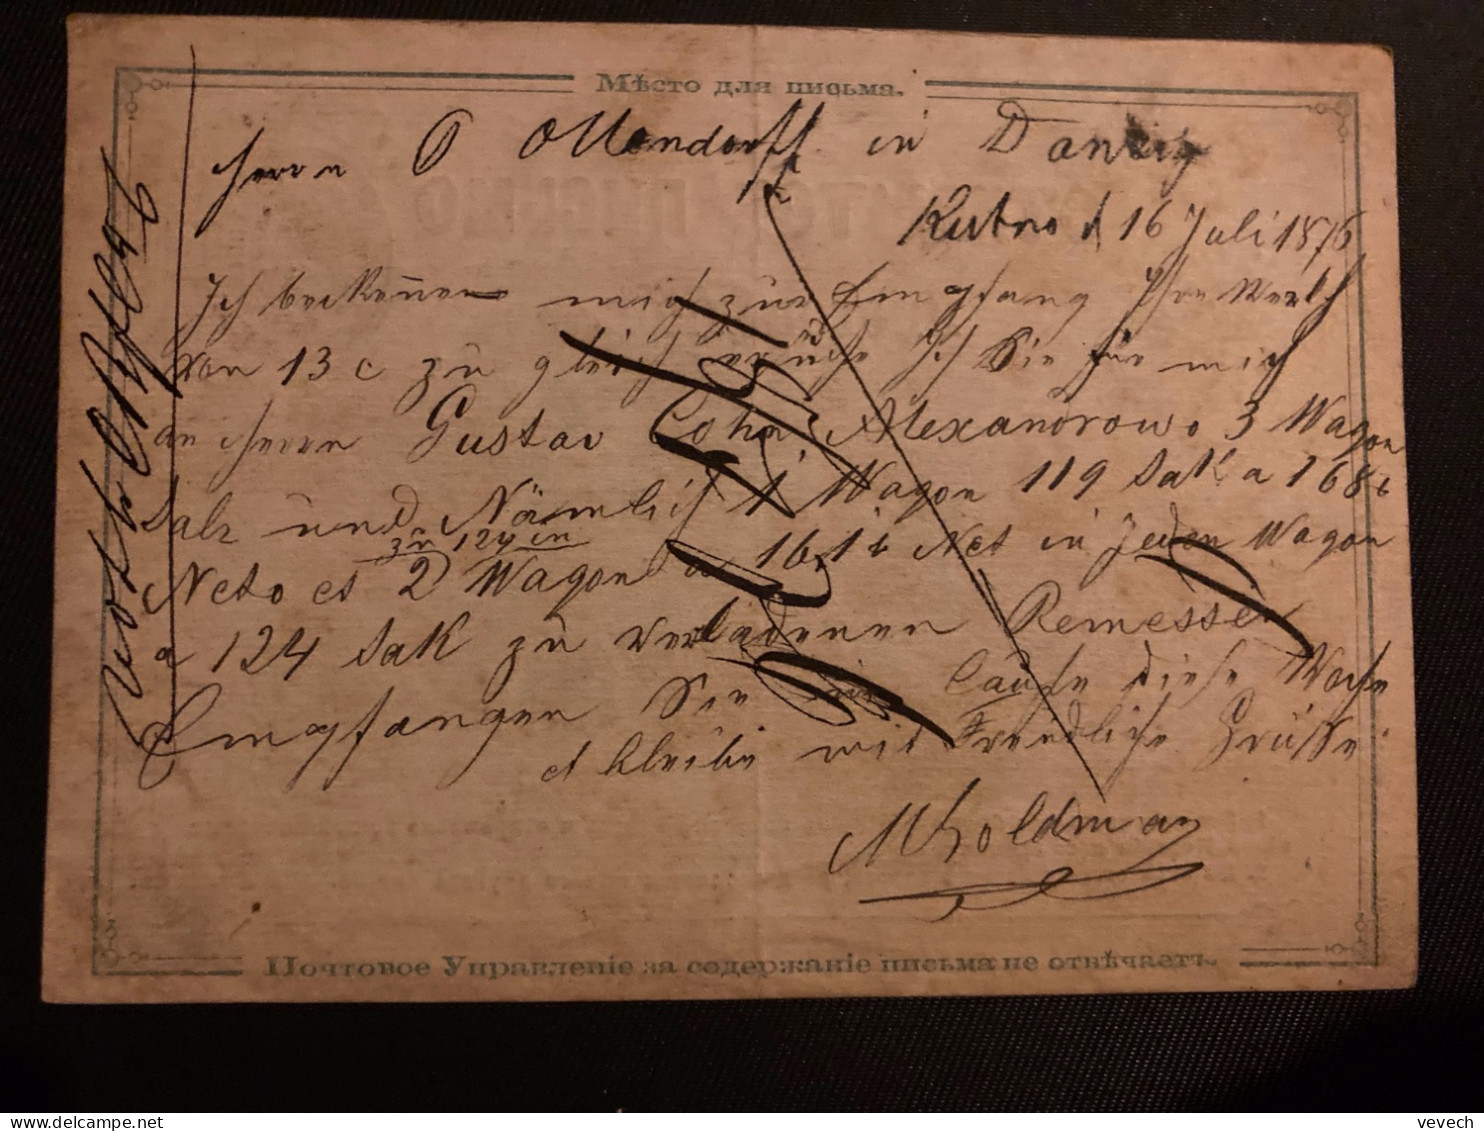 Мѣсто для письма.
Herrn O Ottendorff in Danzig
Kutno d 16 Juli 1876
Ich bekenne mich zur Empfang Ihre Werth
von 13 c zu gleich ersuche Ich Sie für mich
an Herrn Gustav Cohn Alexandrowo 3 Wagon
Salz und Nämlich 1 Wagon 119 Sak a 168 ℔
zu 124 in
Neto et 2 Wagon a 161 ℔ Net in jeden Wagon
a 124 Sak zu verladenen Remesse
Empfangen Sie im laufe diese Woche
et bleibe mit Freundliche Grüsse
M Goldman
Почтовое Управленіе за содержаніе письма не отвѣчаетъ.
vevech